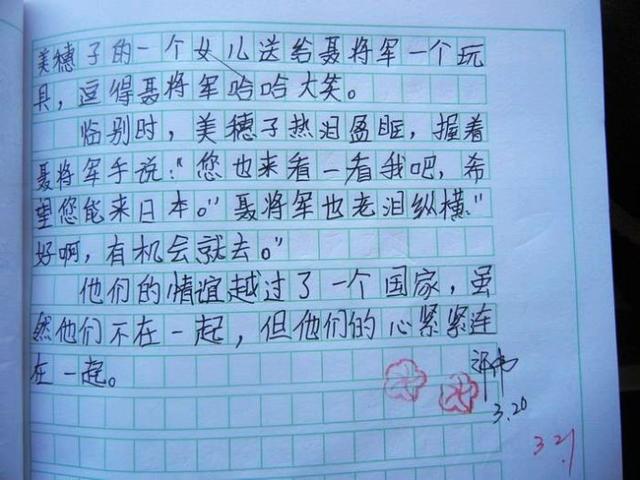 美穗子的一个女儿送给聂将军一个玩
具，逗得聂将军哈哈大笑。
临别时，美穗子热泪盈眶，握着
聂将军手说：“您也来看一看我吧，希
望您能来日本。”聂将军也老泪纵横“
好啊，有机会就去。”
他们的情谊越过了一个国家，虽
然他们不在一起，但他们的心紧紧连
在一起。
3.20
3.21